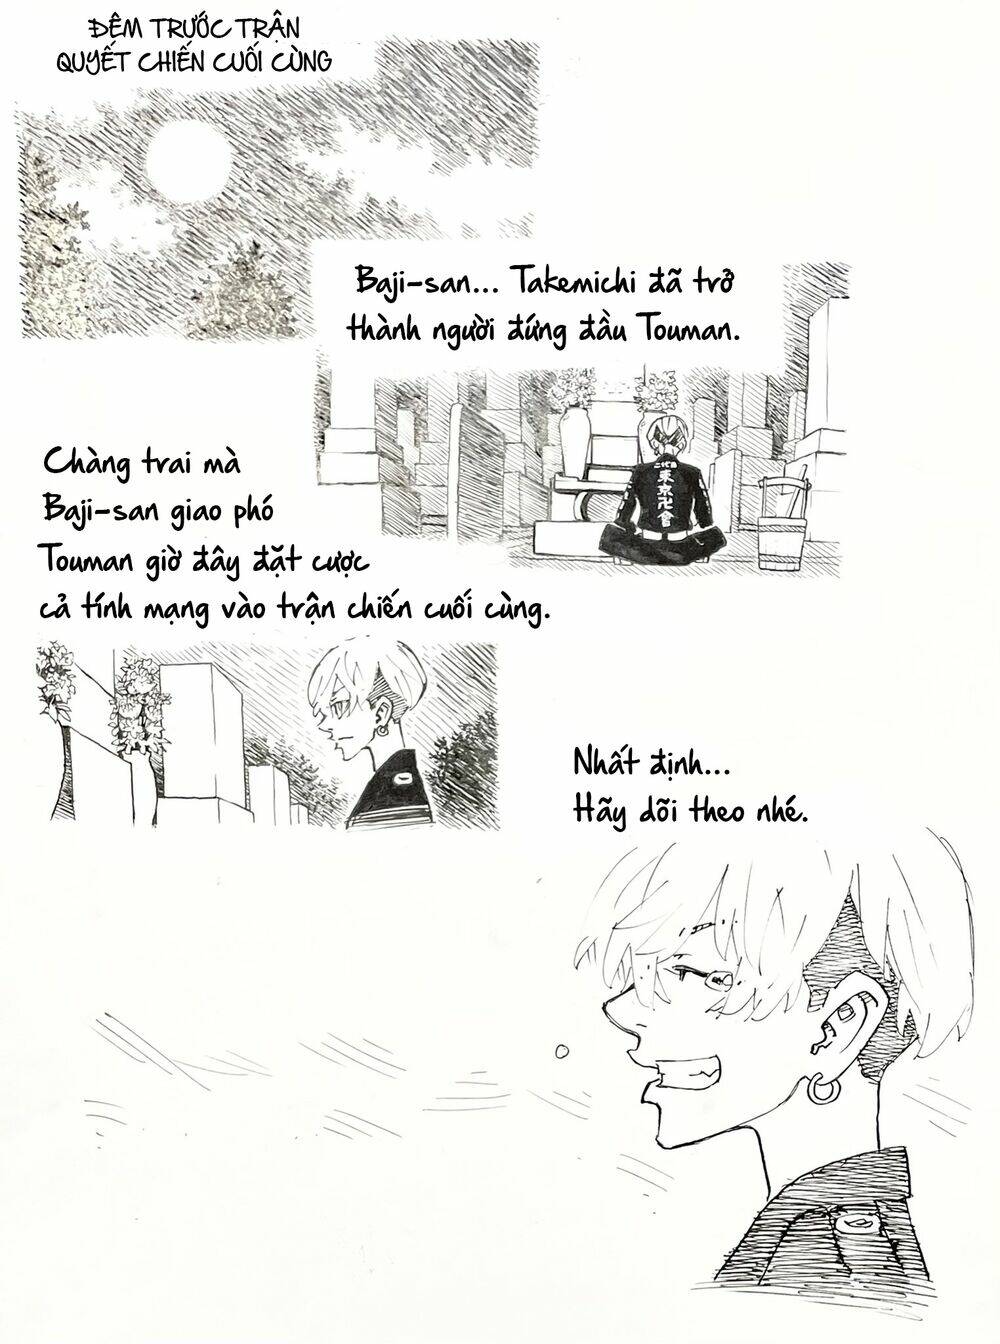 ĐÊM TRƯỚC TRẬN
QUYẾT CHIẾN CUỐI CÙNG
Baji-san... Takemichi đã trở
thành người đứng đầu Touman.
二代目
東京卍會
Chàng trai mà
Baji-san giao phó
Touman giờ đây đặt cược
cả tính mạng vào trận chiến cuối cùng.
Nhất định...
Hãy dõi theo nhé.